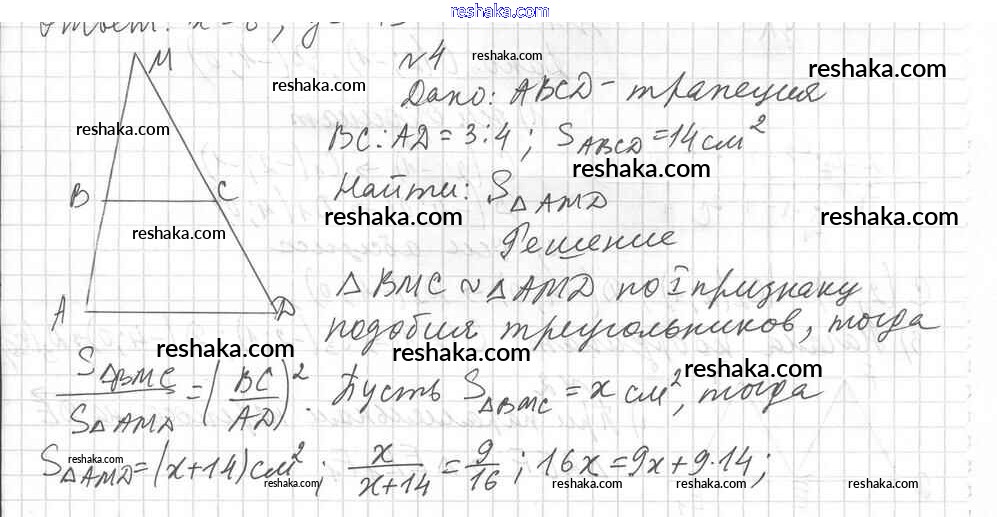 reshaka.com
Ответ: x = 8, y =
№4
reshaka.com
M
reshaka.com
reshaka.com
Дано: ABCD – трапеция
reshaka.com
BC : AD = 3 : 4 ; S_ABCD = 14 см²
reshaka.com
reshaka.com
Найти: S_△AMD
B C
reshaka.com
reshaka.com
reshaka.com
Решение
△ BMC ~ △ AMD по I признаку
A D
подобия треугольников, тогда
reshaka.com
reshaka.com
reshaka.com
S_△BMC / S_△AMD = (BC / AD)². Пусть S_△BMC = x см², тогда
S_△AMD = (x+14) см² ; x / x+14 = 9 / 16 ; 16x = 9x + 9·14 ;
reshaka.com
reshaka.com
reshaka.com
reshaka.com
reshaka.com